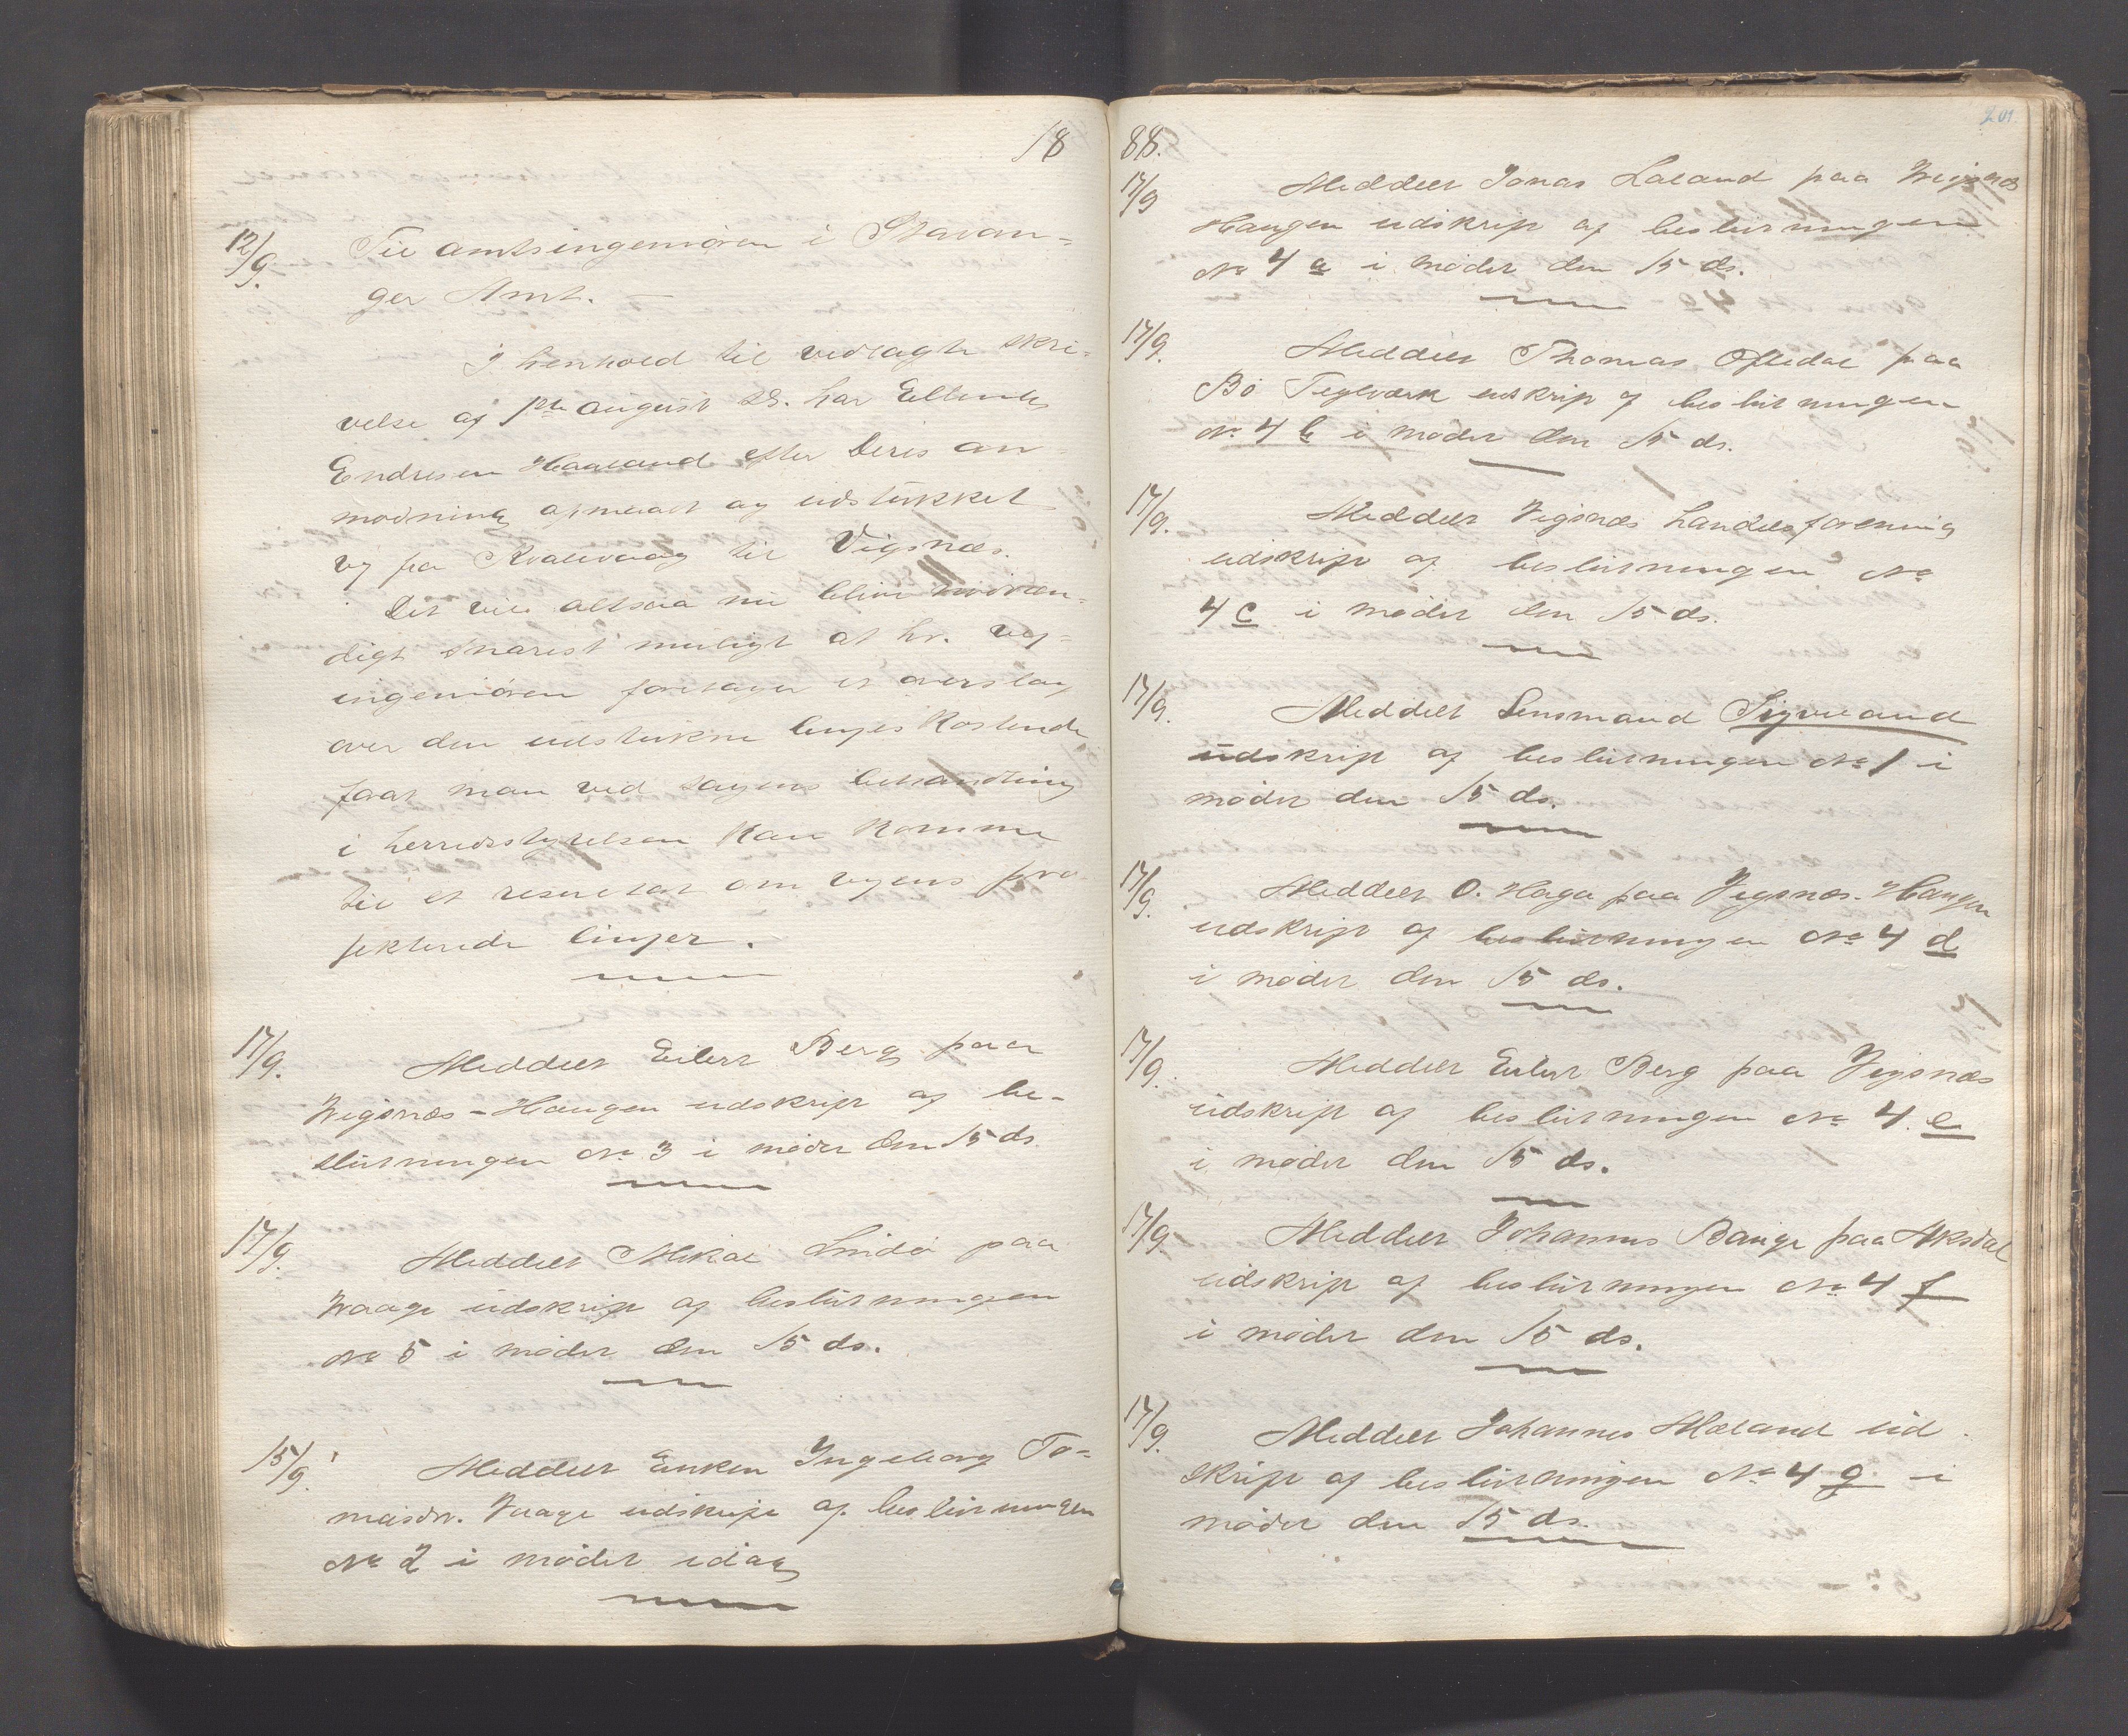 18
12/9. Til amtsingeniøren i Stavan-
ger Amt.
I henhold til vedlagte skri-
velse af 1ste august ds. har Elling
Endresen Haaland efter Deres an-
modning afmaalt og udstukket
vej fra Kvalevaag til Vigsnæs.
Det vil altsaa nu blive nødven-
digt snarest muligt at hr. vej-
ingeniøren foretager et overslag
over den udstukne linjes kostende
forat man ved sagens behandling
i herredsstyrelsen kan komme
til et resultat om vejens pro-
jekterede linjer.
17/9. Meddelt Eilert Berg paa
Vigsnæs-Haugen udskrift af be-
slutningen No 3 i mødet den 15 ds.
17/9. Meddelt Mikal Lindø paa
Vaage udskrift af beslutningen
No 5 i mødet den 15 ds.
15/9. Meddelt Enken Ingeborg To-
masdr. Vaage udskrift af beslutningen
No 2 i mødet idag
201
88.
17/9 Meddelt Jonas Laland paa Vigsnæs
Haugen udskrift af beslutningen
No 4 a i mødet den 15 ds.
17/9. Meddelt Thomas Oftedal paa
Bø Teglværk udskrift af beslutningen
No 4 b i mødet den 15 ds.
17/9. Meddelt Vigsnæs handelsforening
udskrift af beslutningen No
4 c i mødet den 15 ds.
17/9. Meddelt Lensmand Sigveland
udskrift af beslutningen No 1 i
mødet den 15 ds.
17/9. Meddelt O. Haga paa Vigsnæs-Haugen
udskrift af beslutningen No 4 d
i mødet den 15 ds.
17/9. Meddelt Eilert Berg paa Vigsnæs
udskrift af beslutningen No 4. e
i mødet den 15 ds.
17/9 Meddelt Johannes Bauge paa Aksdal
udskrift af beslutningen No 4 f
i mødet den 15 ds.
17/9. Meddelt Johannes Mæland ud-
skrift af beslutningen No 4 g i
mødet den 15 ds.